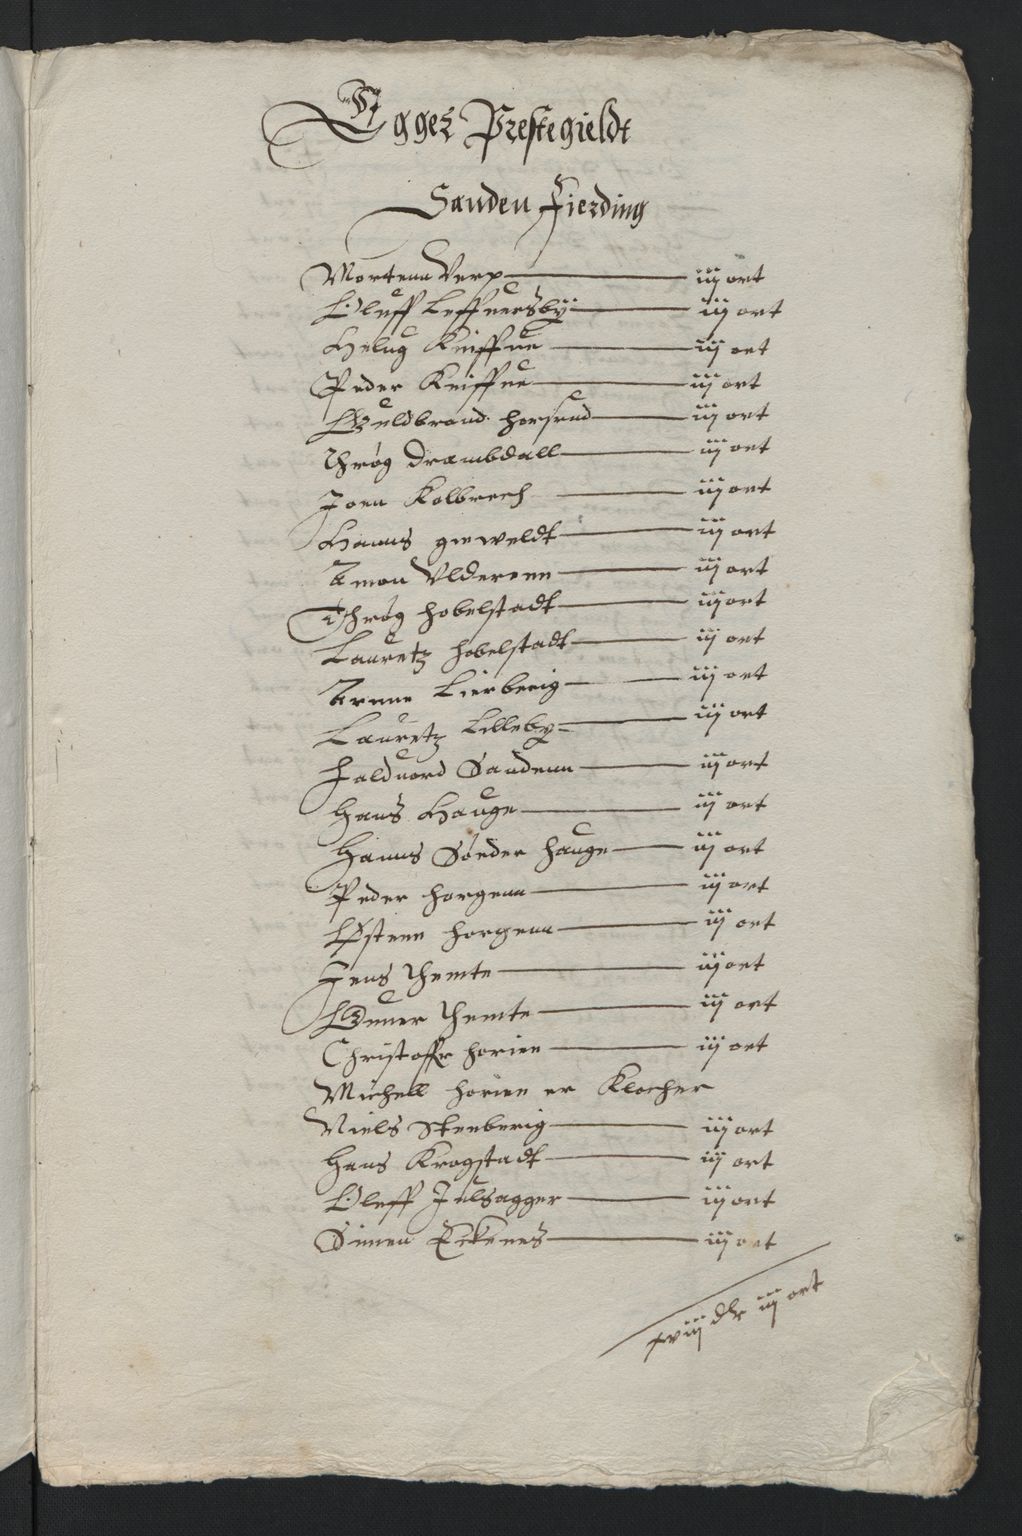 Egger Prestegieldt
Sanden Fierding
Mortenn Verp iij ort
Oluff Leffuersby iij ort
Helug Kniffue iij ort
Peder Kniffue iij ort
Guldbrand horsrud iij ort
Thrøg Drambdall iij ort
Joen Kolbrech iij ort
Hanns gieweldt iij ort
Amon Vlderenn iij ort
Thrøg hobelstadt iij ort
Lauretz hobelstadt iij ort
Arnne Lierberig iij ort
Lauretz Lilleby iij ort
Halduord Sandenn iij ort
Hans Hauge iij ort
Hanns Sønder hauge iij ort
Peder horgenn iij ort
Østenn horgenn iij ort
Jens Themte iij ort
Gunner Themte iij ort
Christoffer horien iij ort
Michell horien er Klocher
Niels Stenberig iij ort
Hans Krogstadt iij ort
Oluff Julsagger iij ort
Simen Eckenes iij ort
xviij dlr iij ort